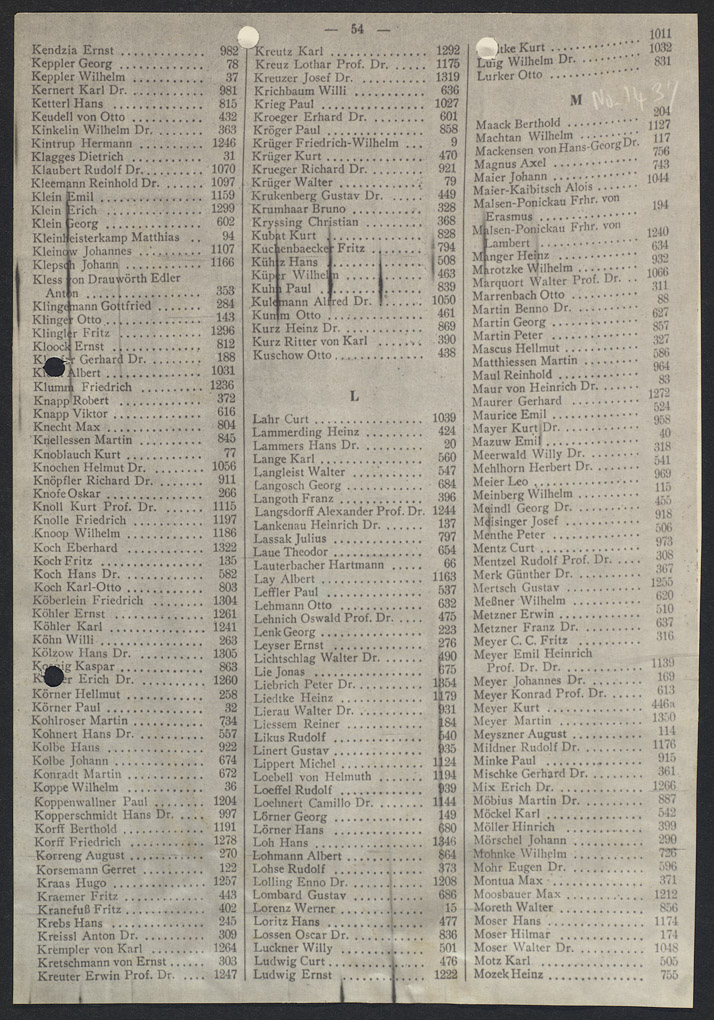 — 54 —
Kendzia Ernst ............ 982
Keppler Georg ............ 78
Keppler Wilhelm ............ 37
Kernert Karl Dr. ............ 981
Ketterl Hans ............ 815
Keudell von Otto ............ 432
Kinkelin Wilhelm Dr. ............ 363
Kintrup Hermann ............ 1246
Klagges Dietrich ............ 31
Klaubert Rudolf Dr. ............ 1070
Kleemann Reinhold Dr. ............ 1097
Klein Emil ............ 1159
Klein Erich ............ 1299
Klein Georg ............ 602
Kleinheisterkamp Matthias .. 94
Kleinow Johannes ............ 1107
Klepsch Johann ............ 1166
Kless von Drauwörth Edler
Anton ............ 353
Klingemann Gottfried ............ 284
Klinger Otto ............ 143
Klingler Fritz ............ 1296
Kloock Ernst ............ 812
Gerhard Dr. ............ 188
Albert ............ 1031
Klumm Friedrich ............ 1236
Knapp Robert ............ 372
Knapp Viktor ............ 616
Knecht Max ............ 804
Knellessen Martin ............ 845
Knoblauch Kurt ............ 77
Knochen Helmut Dr. ............ 1056
Knöpfler Richard Dr. ............ 911
Knofe Oskar ............ 266
Knoll Kurt Prof. Dr. ............ 1115
Knolle Friedrich ............ 1197
Knoop Wilhelm ............ 1186
Koch Eberhard ............ 1322
Koch Fritz ............ 135
Koch Hans Dr. ............ 582
Koch Karl-Otto ............ 803
Köberlein Friedrich ............ 1304
Köhler Ernst ............ 1261
Köhler Karl ............ 1241
Köhn Willi ............ 263
Kölzow Hans Dr. ............ 1305
Kaspar ............ 863
Erich Dr. ............ 1260
Körner Hellmut ............ 258
Körner Paul ............ 32
Kohlroser Martin ............ 734
Kohnert Hans Dr. ............ 557
Kolbe Hans ............ 922
Kolbe Johann ............ 674
Konradt Martin ............ 672
Koppe Wilhelm ............ 36
Koppenwallner Paul ............ 1204
Kopperschmidt Hans Dr. ............ 997
Korff Berthold ............ 1191
Korff Friedrich ............ 1278
Korreng August ............ 270
Korsemann Gerret ............ 122
Kraas Hugo ............ 1257
Kraemer Fritz ............ 443
Kranefuß Fritz ............ 402
Krebs Hans ............ 245
Kreissl Anton Dr. ............ 309
Krempler von Karl ............ 1264
Kretschmann von Ernst ............ 303
Kreuter Erwin Prof. Dr. ............ 1247
Kreutz Karl ............ 1292
Kreuz Lothar Prof. Dr. ............ 1175
Kreuzer Josef Dr. ............ 1319
Krichbaum Willi ............ 636
Krieg Paul ............ 1027
Kroeger Erhard Dr. ............ 601
Kröger Paul ............ 858
Krüger Friedrich-Wilhelm ... 9
Krüger Kurt ............ 470
Krueger Richard Dr. ............ 921
Krüger Walter ............ 79
Krukenberg Gustav Dr. ............ 449
Krumhaar Bruno ............ 328
Kryssing Christian ............ 368
Kubat Kurt ............ 828
Kuchenbaecker Fritz ............ 794
Kühtz Hans ............ 508
Küper Wilhelm ............ 463
Kuhn Paul ............ 839
Kulemann Alfred Dr. ............ 1050
Kumm Otto ............ 461
Kurz Heinz Dr. ............ 869
Kurz Ritter von Karl ............ 390
Kuschow Otto ............ 438
L
Lahr Curt ............ 1039
Lammerding Heinz ............ 424
Lammers Hans Dr. ............ 20
Lange Karl ............ 560
Langleist Walter ............ 547
Langosch Georg ............ 684
Langoth Franz ............ 396
Langsdorff Alexander Prof. Dr. 1244
Lankenau Heinrich Dr. ............ 137
Lassak Julius ............ 797
Laue Theodor ............ 654
Lauterbacher Hartmann ............ 66
Lay Albert ............ 1163
Leffler Paul ............ 537
Lehmann Otto ............ 632
Lehnich Oswald Prof. Dr. ............ 475
Lenk Georg ............ 223
Leyser Ernst ............ 276
Lichtschlag Walter Dr. ............ 490
Lie Jonas ............ 675
Liebrich Peter Dr. ............ 1354
Liedtke Heinz ............ 1179
Lierau Walter Dr. ............ 931
Liessem Reiner ............ 184
Likus Rudolf ............ 540
Linert Gustav ............ 935
Lippert Michel ............ 1124
Loebell von Helmuth ............ 1194
Loeffel Rudolf ............ 939
Loehnert Camillo Dr. ............ 1144
Lörner Georg ............ 149
Lörner Hans ............ 680
Loh Hans ............ 1346
Lohmann Albert ............ 864
Lohse Rudolf ............ 373
Lolling Enno Dr. ............ 1208
Lombard Gustav ............ 686
Lorenz Werner ............ 15
Loritz Hans ............ 477
Lossen Oscar Dr. ............ 836
Luckner Willy ............ 501
Ludwig Curt ............ 476
Ludwig Ernst ............ 1222
Kurt ............ 1011
Luig Wilhelm Dr. ............ 1032
Lurker Otto ............ 831
M
Maack Berthold ............ 204
Machtan Wilhelm ............ 1127
Mackensen von Hans-Georg Dr. 117
Magnus Axel ............ 756
Maier Johann ............ 743
Maier-Kaibitsch Alois ............ 1044
Malsen-Ponickau Frhr. von
Erasmus ............ 194
Malsen-Ponickau Frhr. von
Lambert ............ 1240
Manger Heinz ............ 634
Marotzke Wilhelm ............ 932
Marquort Walter Prof. Dr. ............ 1066
Marrenbach Otto ............ 311
Martin Benno Dr. ............ 88
Martin Georg ............ 627
Martin Peter ............ 857
Mascus Hellmut ............ 327
Matthiessen Martin ............ 586
Maul Reinhold ............ 964
Maur von Heinrich Dr. ............ 83
Maurer Gerhard ............ 1272
Maurice Emil ............ 524
Mayer Kurt Dr. ............ 958
Mazuw Emil ............ 40
Meerwald Willy Dr. ............ 318
Mehlhorn Herbert Dr. ............ 541
Meier Leo ............ 969
Meinberg Wilhelm ............ 115
Meindl Georg Dr. ............ 455
Meisinger Josef ............ 918
Menthe Peter ............ 506
Mentz Curt ............ 973
Mentzel Rudolf Prof. Dr. ............ 308
Merk Günther Dr. ............ 367
Mertsch Gustav ............ 1255
Meßner Wilhelm ............ 620
Metzner Erwin ............ 510
Metzner Franz Dr. ............ 637
Meyer C. C. Fritz ............ 316
Meyer Emil Heinrich
Prof. Dr. Dr. ............ 1139
Meyer Johannes Dr. ............ 169
Meyer Konrad Prof. Dr. ............ 613
Meyer Kurt ............ 446a
Meyer Martin ............ 1350
Meyszner August ............ 114
Mildner Rudolf Dr. ............ 1176
Minke Paul ............ 915
Mischke Gerhard Dr. ............ 361
Mix Erich Dr. ............ 1266
Möbius Martin Dr. ............ 887
Möckel Karl ............ 542
Möller Hinrich ............ 399
Mörschel Johann ............ 290
Mohnke Wilhelm ............ 726
Mohr Eugen Dr. ............ 596
Montua Max ............ 371
Moosbauer Max ............ 1212
Moreth Walter ............ 856
Moser Hans ............ 1174
Moser Hilmar ............ 174
Moser Walter Dr. ............ 1048
Motz Karl ............ 505
Mozek Heinz ............ 755